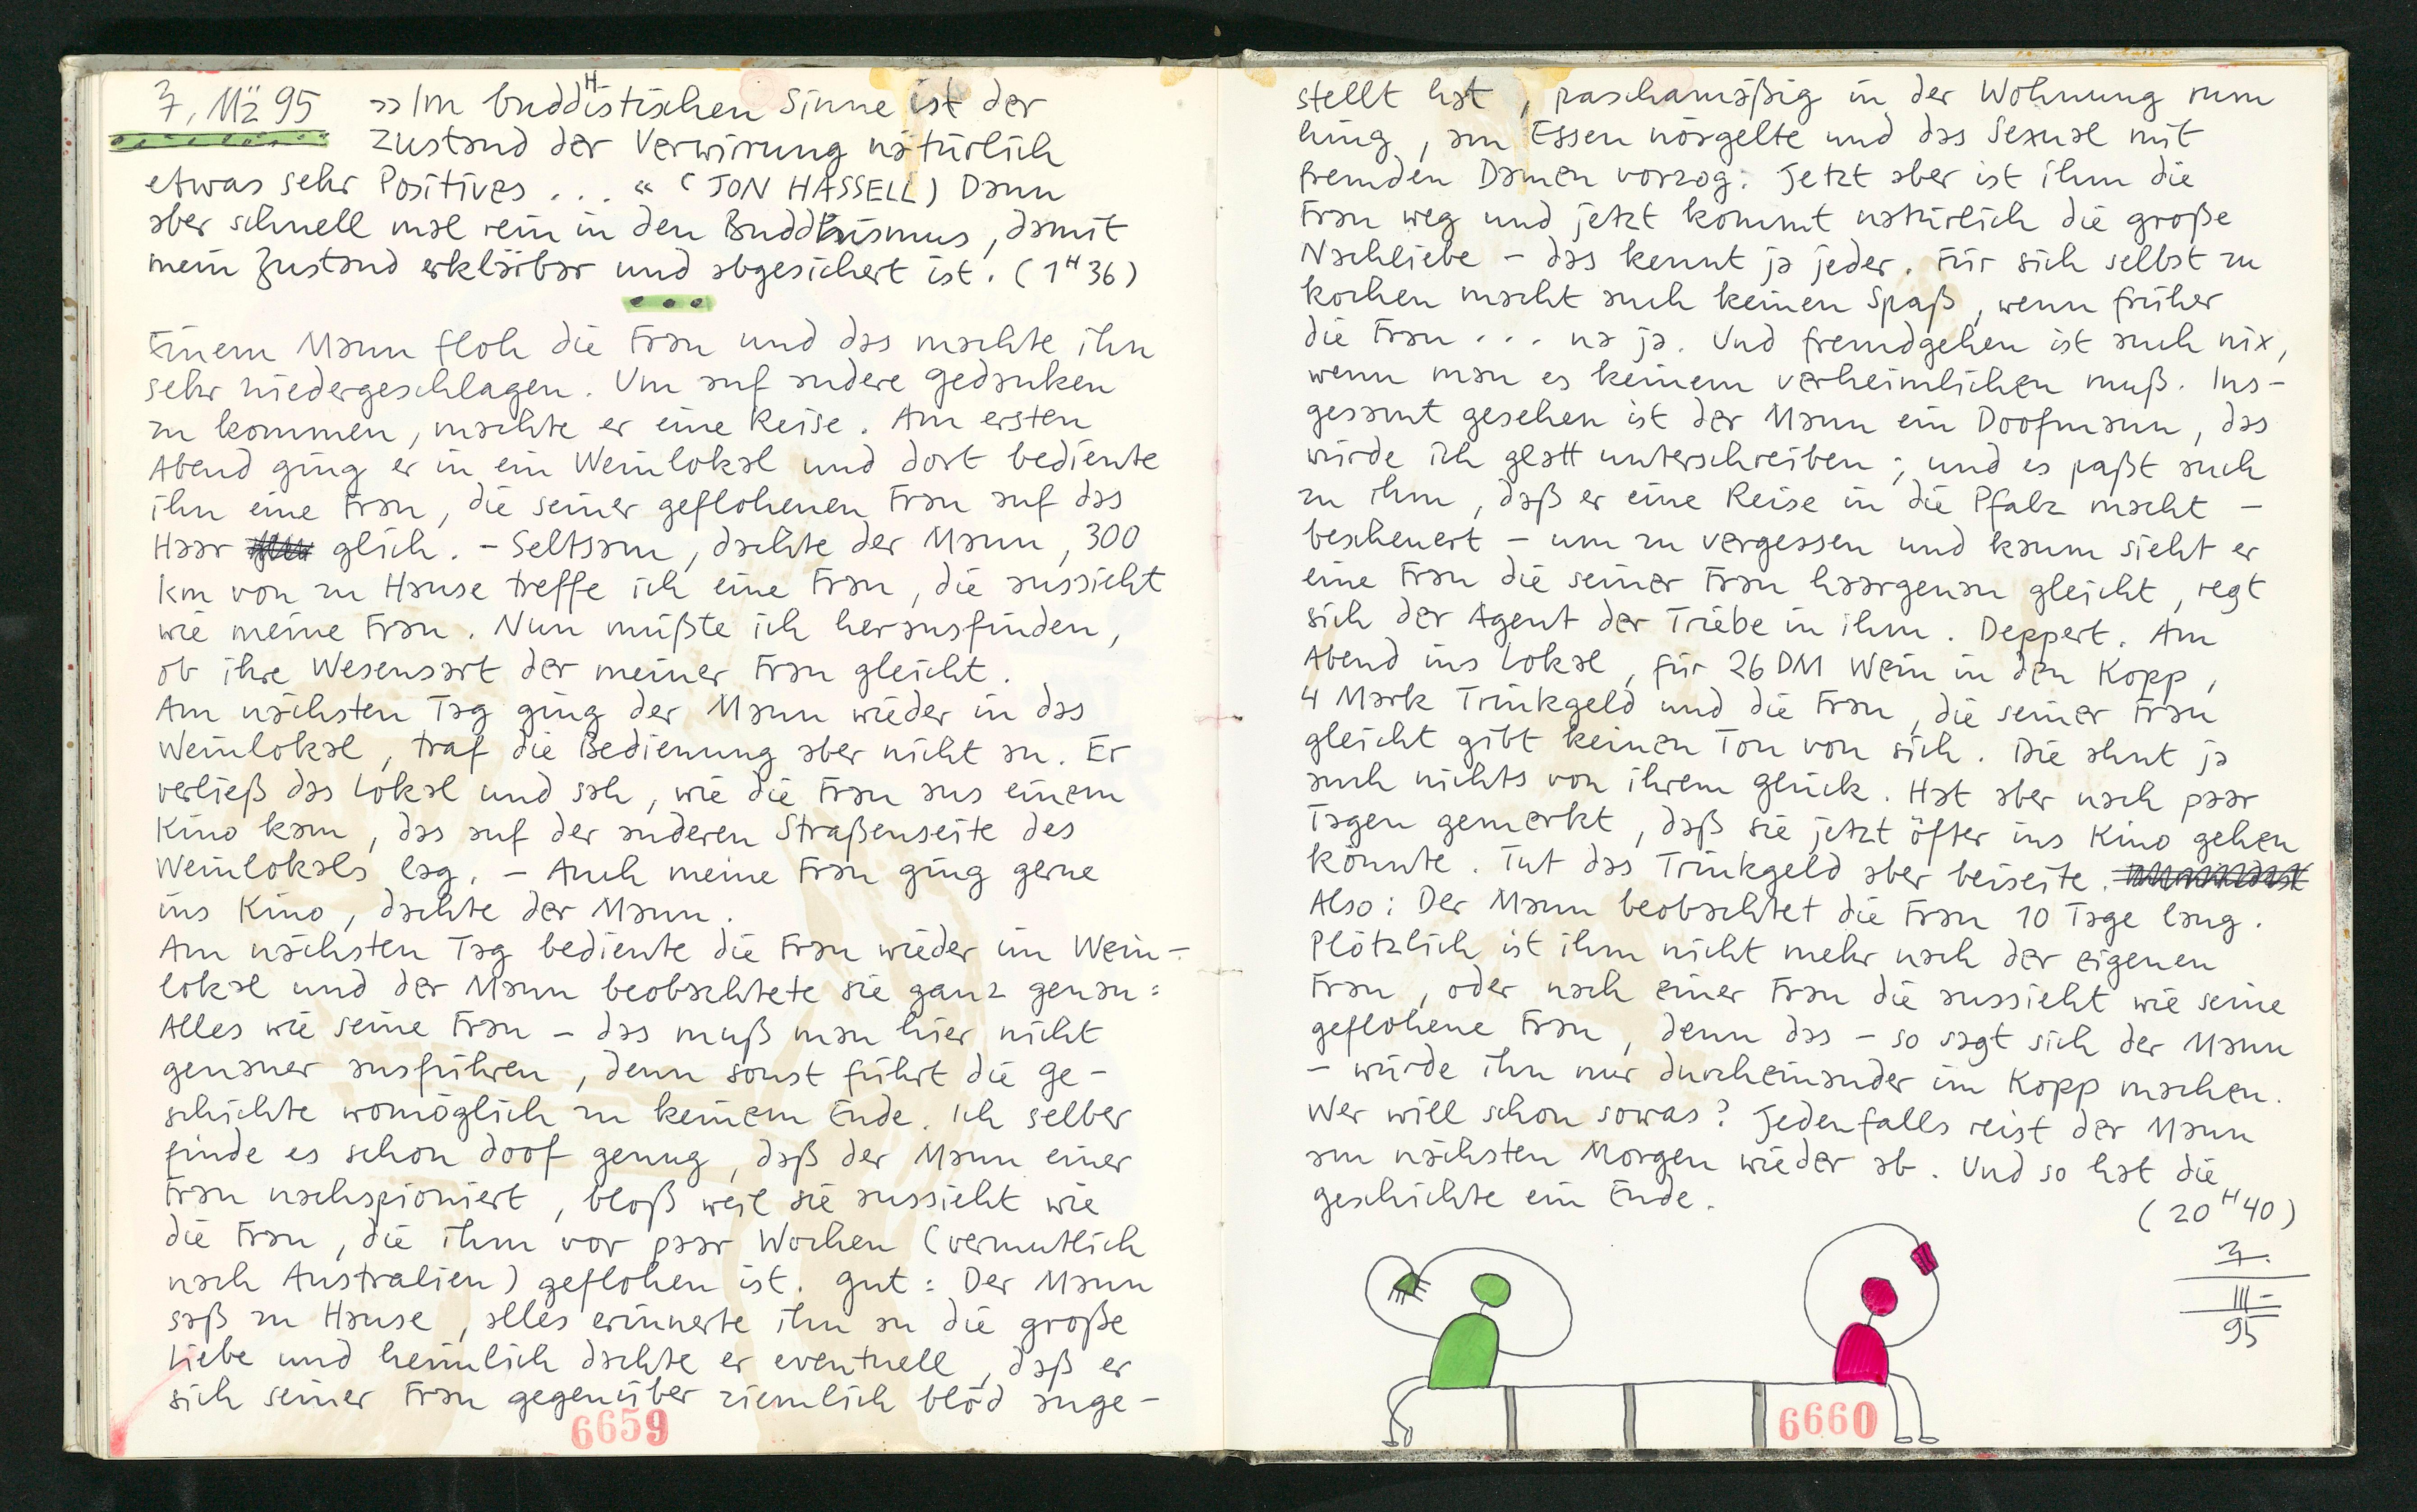 7. Mä 95 »Im buddHistischen Sinne ist der
Zustand der Verwirrung natürlich
etwas sehr Positives ... « (JON HASSELL) Dann
aber schnell mal rein in den Buddhismus, damit
mein Zustand erklärbar und abgesichert ist. (1H36)
...
Einem Mann floh die Frau und das machte ihn
sehr niedergeschlagen. Um auf andere Gedanken
zu kommen, machte er eine Reise. Am ersten
Abend ging er in ein Weinlokal und dort bediente
ihn eine Frau, die seiner geflohenen Frau auf das
Haar glich. – Seltsam, dachte der Mann, 300
km von zu Hause treffe ich eine Frau, die aussieht
wie meine Frau. Nun müßte ich herausfinden,
ob ihre Wesensart der meiner Frau gleicht.
Am nächsten Tag ging der Mann wieder in das
Weinlokal, traf die Bedienung aber nicht an. Er
verließ das Lokal und sah, wie die Frau aus einem
Kino kam, das auf der anderen Straßenseite des
Weinlokals lag. – Auch meine Frau ging gerne
ins Kino, dachte der Mann.
Am nächsten Tag bediente die Frau wieder im Wein-
lokal und der Mann beobachtete sie ganz genau:
Alles wie seine Frau – das muß man hier nicht
genauer ausführen, denn sonst führt die Ge-
schichte womöglich zu keinem Ende. Ich selber
finde es schon doof genug, daß der Mann einer
Frau nachspioniert, bloß weil sie aussieht wie
die Frau, die ihm vor paar Wochen (vermutlich
nach Australien) geflohen ist. Gut: Der Mann
saß zu Hause, alles erinnerte ihn an die große
Liebe und heimlich dachte er eventuell, daß er
sich seiner Frau gegenüber ziemlich blöd ange-
6659
stellt hat, paschamäßig in der Wohnung rum
hing, am Essen nörgelte und das Sexual mit
fremden Damen vorzog. Jetzt aber ist ihm die
Frau weg und jetzt kommt natürlich die große
Nachliebe – das kennt ja jeder. Für sich selbst zu
kochen macht auch keinen Spaß, wenn früher
die Frau ... na ja. Und fremdgehen ist auch nix,
wenn man es keinem verheimlichen muß. Ins-
gesamt gesehen ist der Mann ein Doofmann, das
würde ich glatt unterschreiben; und es paßt auch
zu ihm, daß er eine Reise in die Pfalz macht –
bescheuert – um zu vergessen und kaum sieht er
eine Frau die seiner Frau haargenau gleicht, regt
sich der Agent der Triebe in ihm. Deppert. Am
Abend ins Lokal, für 26 DM Wein in den Kopp,
4 Mark Trinkgeld und die Frau, die seiner Frau
gleicht gibt keinen Ton von sich. Die ahnt ja
auch nichts von ihrem Glück. Hat aber nach paar
Tagen gemerkt, daß sie jetzt öfter ins Kino gehen
könnte. Tut das Trinkgeld aber beiseite.
Also: Der Mann beobachtet die Frau 10 Tage lang.
Plötzlich ist ihm nicht mehr nach der eigenen
Frau, oder nach einer Frau die aussieht wie seine
geflohene Frau, denn das – so sagt sich der Mann
– würde ihn nur durcheinander im Kopp machen.
Wer will schon sowas? Jedenfalls reist der Mann
am nächsten Morgen wieder ab. Und so hat die
Geschichte ein Ende.
(20H40)
7.
III –
95
6660